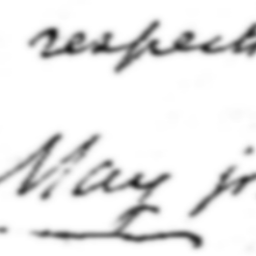 respect
May